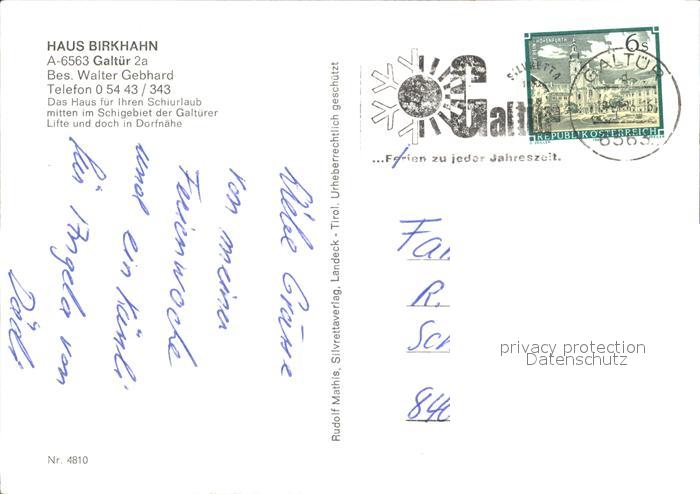 HAUS BIRKHAHN
A-6563 Galtür 2a
Bes. Walter Gebhard
Telefon 0 54 43 / 343
Das Haus für Ihren Schiurlaub
mitten im Schigebiet der Galtürer
Lifte und doch in Dorfnähe
Liebe Grüsse
von meiner
Ferienwoche
und ein
für Angela von
Nr. 4810
Rudolf Mathis, Silvrettaverlag, Landeck - Tirol. Urheberrechtlich geschützt
SILVRETTA
Galtür
...Ferien zu jeder Jahreszeit.
6s
REPUBLIK ÖSTERREICH
GALTÜR
6563
Fa
R.
Sc
840
privacy protection
Datenschutz